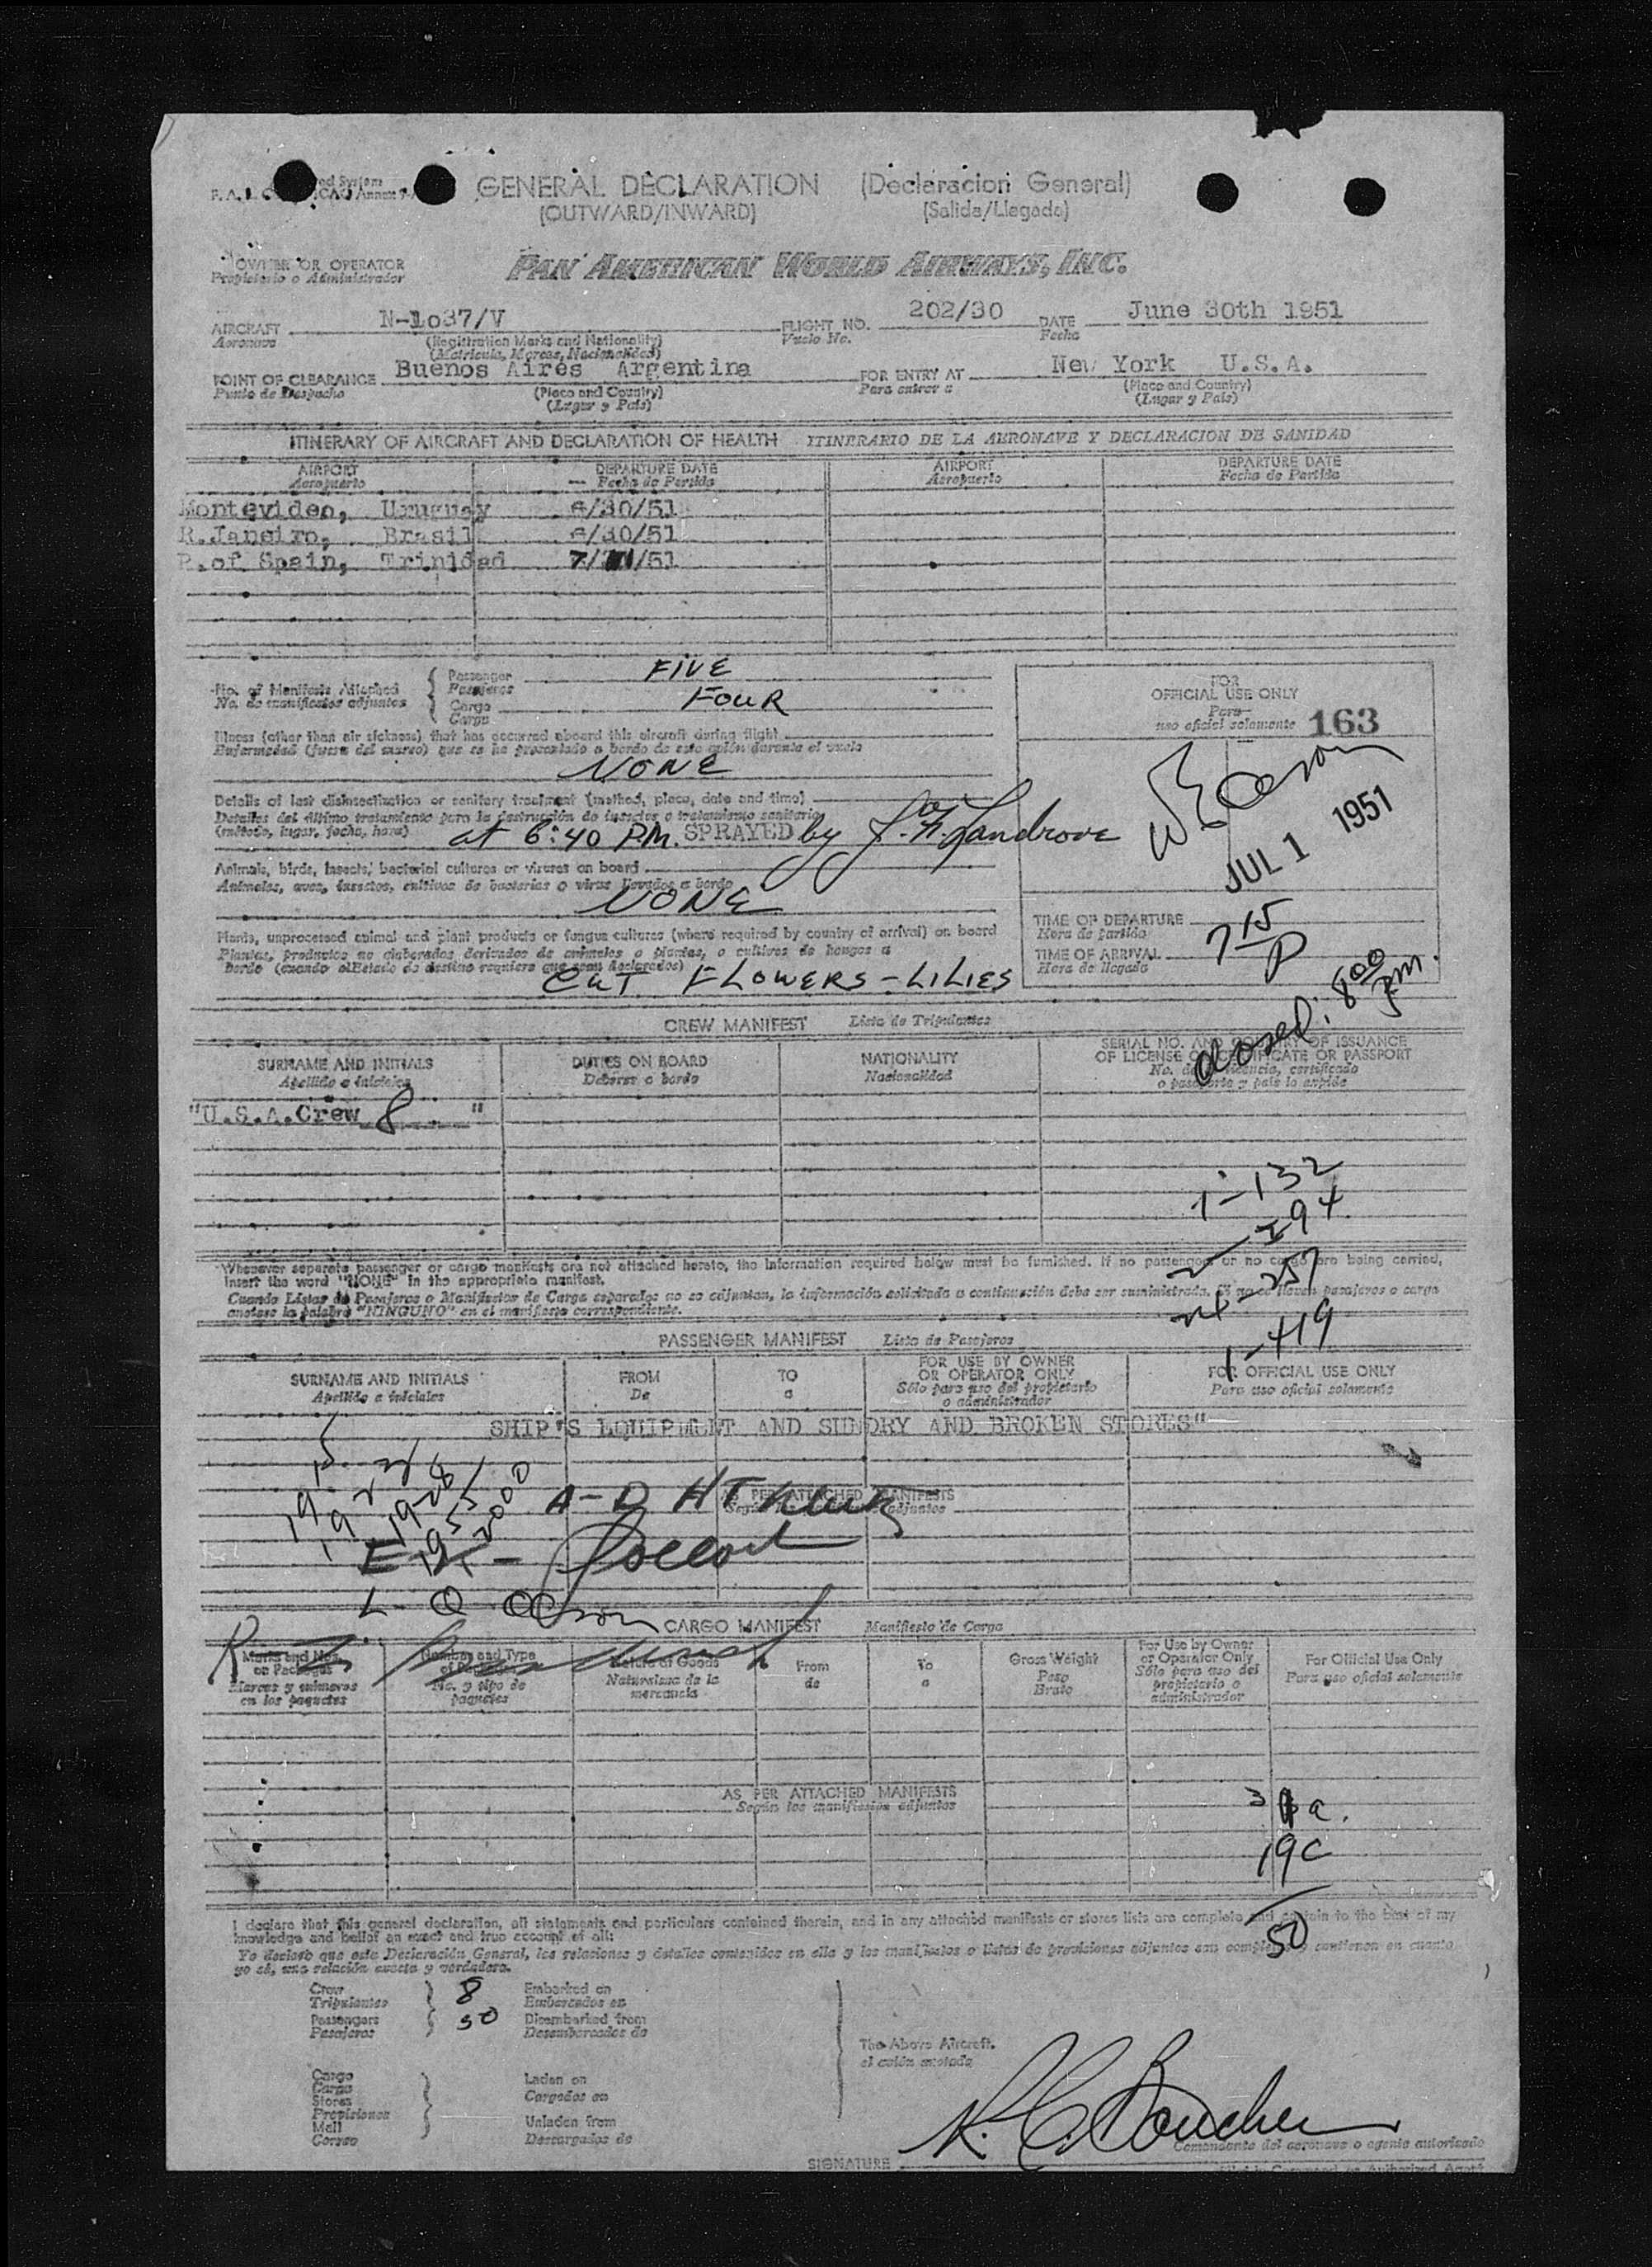 GENERAL DECLARATION (Declaracion General)
(OUTWARD/INWARD) (Salida/Llegada)
OWNER OR OPERATOR
Propietario o Administrador
PAN AMERICAN WORLD AIRWAYS, INC.
AIRCRAFT N-1o37/V FLIGHT NO. 202/30 DATE June 30th 1951
Aeronave Vuelo No. Fecha
(Registration Marks and Nationality)
(Matricula, Marcas, Nacionalidad)
POINT OF CLEARANCE Buenos Aires Argentina FOR ENTRY AT New York U.S.A.
Punto de Despacho (Place and Country) Para entrar a (Place and Country)
(Lugar y Pais) (Lugar y Pais)
ITINERARY OF AIRCRAFT AND DECLARATION OF HEALTH ITINERARIO DE LA AERONAVE Y DECLARACION DE SANIDAD
AIRPORT DEPARTURE DATE AIRPORT DEPARTURE DATE
Aeropuerto Fecha de Partida Aeropuerto Fecha de Partida
Montevideo, Uruguay 6/30/51
R.Janeiro, Brasil 6/30/51
P.of Spain, Trinidad 7/ /51
No. of Manifests Attached Passenger FIVE
No. de manifiestos adjuntos Pasajeros
Cargo FOUR
Carga
FOR
OFFICIAL USE ONLY
Para
uso oficial solamente 163
Illness (other than air sickness) that has occurred aboard this aircraft during flight
Enfermedad (fuera del mareo) que se ha presentado a bordo de este avión durante el vuelo
NONE
Details of last disinsectization or sanitary treatment (method, place, date and time)
Detalles del último tratamiento para la destrucción de insectos o tratamiento sanitario
(método, lugar, fecha, hora) at 6:40 P.M. SPRAYED by
JUL 1 1951
Animals, birds, insects, bacterial cultures or viruses on board
Animales, aves, insectos, cultivos de bacterias o virus llevados a bordo
NONE
Plants, unprocessed animal and plant products or fungus cultures (where required by country of arrival) on board
Plantas, productos no elaborados derivados de animales o plantas, o cultivos de hongos a
bordo (cuando el Estado de destino requiere que sean declarados)
CUT FLOWERS - LILIES
TIME OF DEPARTURE
Hora de partida
TIME OF ARRIVAL 7 15 P
Hora de llegada
closed: 8 00 p.m.
CREW MANIFEST Lista de Tripulantes
SURNAME AND INITIALS DUTIES ON BOARD NATIONALITY SERIAL NO. AND COUNTRY OF ISSUANCE
Apellido e iniciales Deberes a bordo Nacionalidad OF LICENSE OR CERTIFICATE OR PASSPORT
No. de licencia, certificado
o pasaporte y pais lo expide
"U.S.A.Crew 8 "
1-132
Whenever separate passenger or cargo manifests are not attached hereto, the information required below must be furnished. If no passengers or no cargo are being carried,
insert the word "NONE" in the appropriate manifest.
Cuando Listas de Pasajeros o Manifiestos de Carga separados no se adjuntan, la información solicitada a continuación debe ser suministrada. Si no se llevan pasajeros o carga
anótese la palabra "NINGUNO" en el manifiesto correspondiente.
1-419
PASSENGER MANIFEST Lista de Pasajeros
SURNAME AND INITIALS FROM TO FOR USE BY OWNER OR OPERATOR ONLY FOR OFFICIAL USE ONLY
Apellido e iniciales De a Sólo para uso del propietario o administrador Para uso oficial solamente
SHIP'S EQUIPMENT AND SUNDRY AND BROKEN STORES"
AS PER ATTACHED MANIFESTS
Según los manifiestos adjuntos
CARGO MANIFEST Manifiesto de Carga
Marks and Nos. on Packages Number and Type of Packages Nature of Goods From To Gross Weight For Use by Owner or Operator Only For Official Use Only
Marcas y números en los paquetes No. y tipo de paquetes Naturaleza de la mercancia de a Peso Bruto Sólo para uso del propietario o administrador Para uso oficial solamente
AS PER ATTACHED MANIFESTS
Según los manifiestos adjuntos
19c
50
I declare that this general declaration, all statements and particulars contained therein, and in any attached manifests or stores lists are complete and contain to the best of my
knowledge and belief an exact and true account of all:
Yo declaro que esta Declaración General, las relaciones y detalles contenidos en ella y los manifiestos o listas de provisiones adjuntos son completos y contienen en cuanto
yo sé, una relación exacta y verdadera.
Crew 8 Embarked on
Tripulantes Embarcados en
Passengers 50 Disembarked from
Pasajeros Desembarcados de
The Above Aircraft.
el avión anotado
Cargo Laden on
Carga Cargados en
Stores
Provisiones
Mail Unladen from
Correo Descargados de
K. C. Boucher
Comandante del aeronave o agente autorizado
SIGNATURE